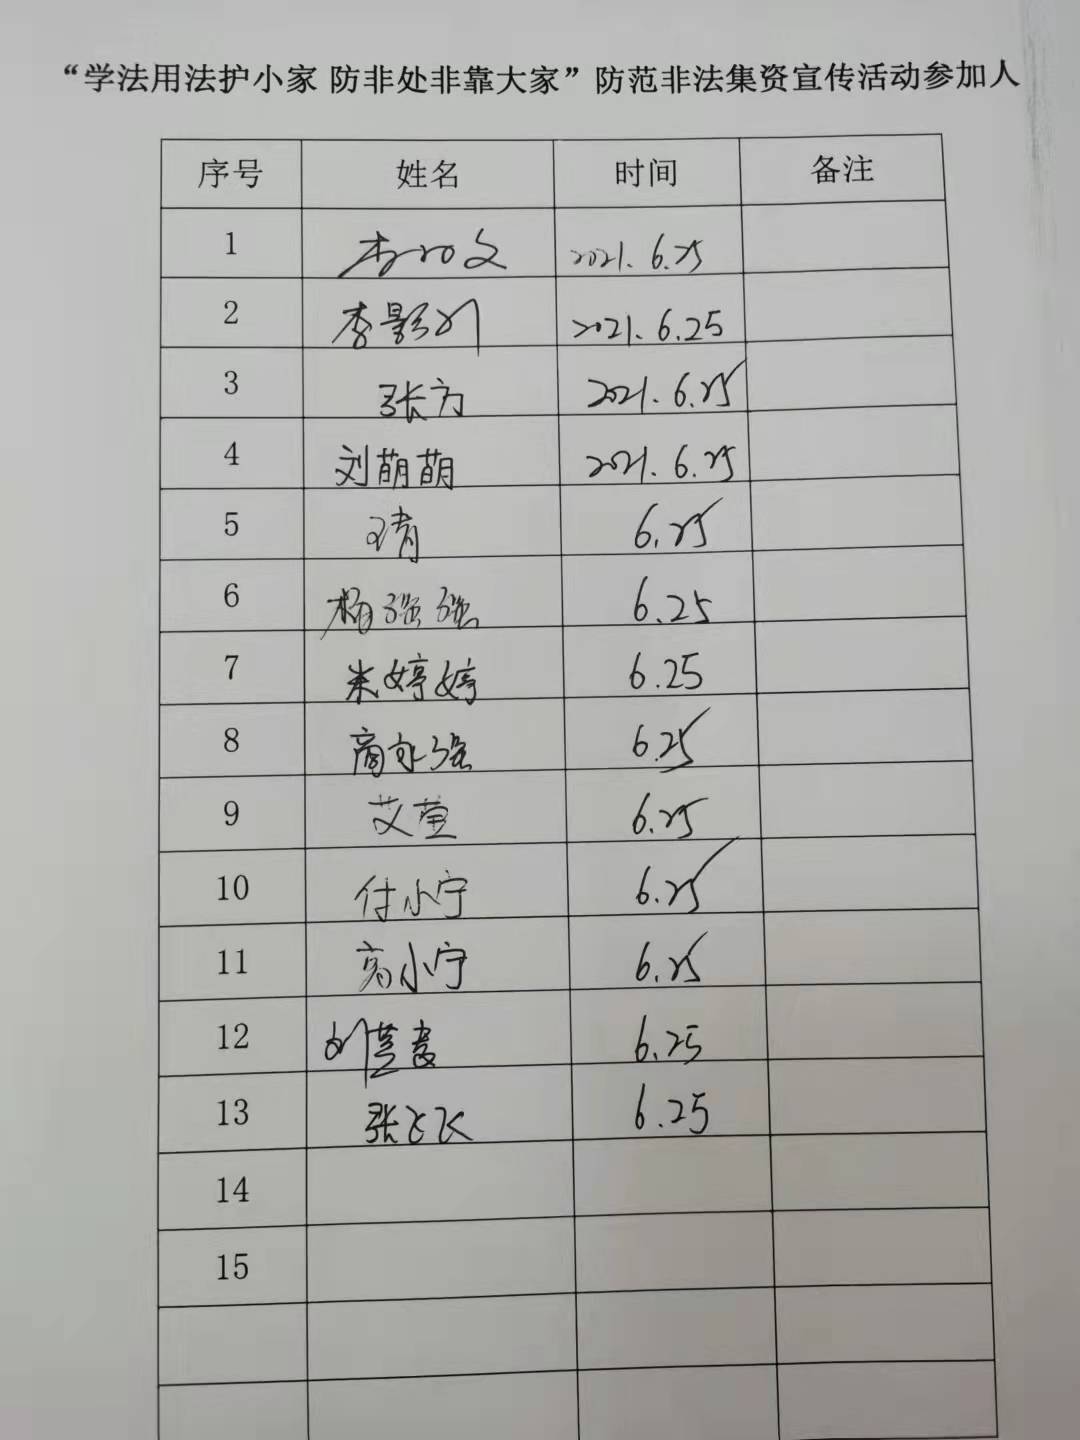 “学法用法护小家 防非处非靠大家”防范非法集资宣传活动参加人
序号 姓名 时间 备注
1 2021.6.25
2 李影 2021.6.25
3 张方 2021.6.25
4 刘萌萌 2021.6.25
5 王倩 6.25
6 杨强强 6.25
7 朱婷婷 6.25
8 商永强 6.25
9 艾萱 6.25
10 付小宁 6.25
11 高小宁 6.25
12 刘 6.25
13 张飞飞 6.25
14
15